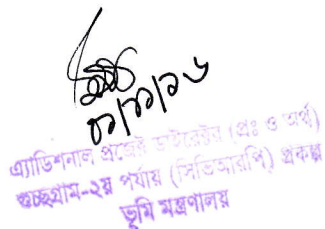 ০১/১১/১৬
এ্যাডিশনাল প্রজেক্ট ডাইরেক্টর (প্রঃ ও অর্থ)
গুচ্ছগ্রাম-২য় পর্যায় (সিভিআরপি) প্রকল্প
ভূমি মন্ত্রণালয়